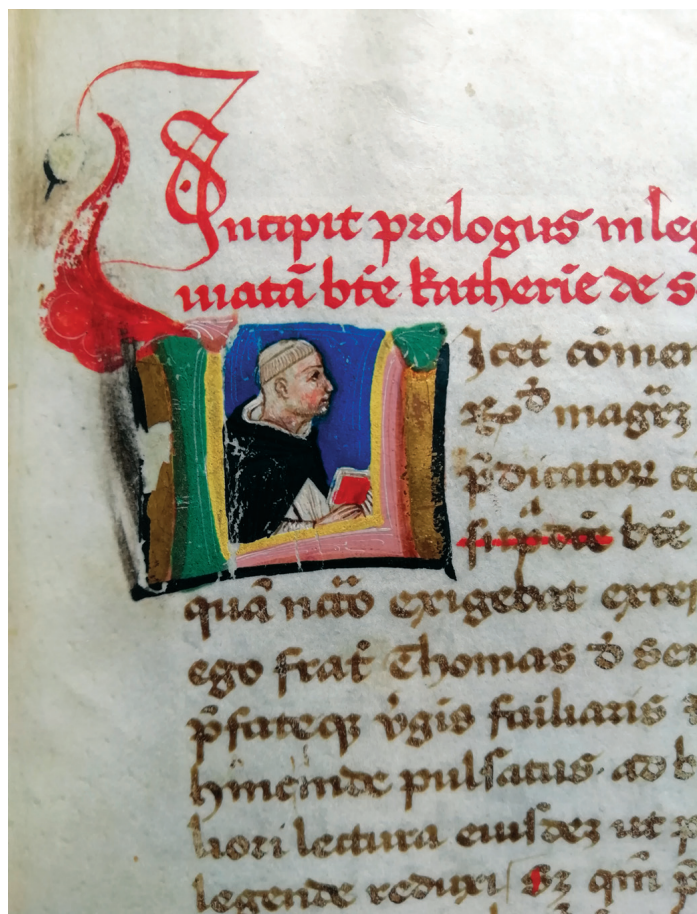 Incipit prologus in leg
uiatā btē katherīe de s
Licet cōmen
magr̄z
p̄dicatorꝝ cō
btē
quā nāō exigebat exte
ego frat̄ Thomas đ sen
p̄fateqꝫ v̄gis failiaris
hincinde pulsatus· ad b
liori lectura eiusdez ut p
legende reduxi sꝫ qm̄ p